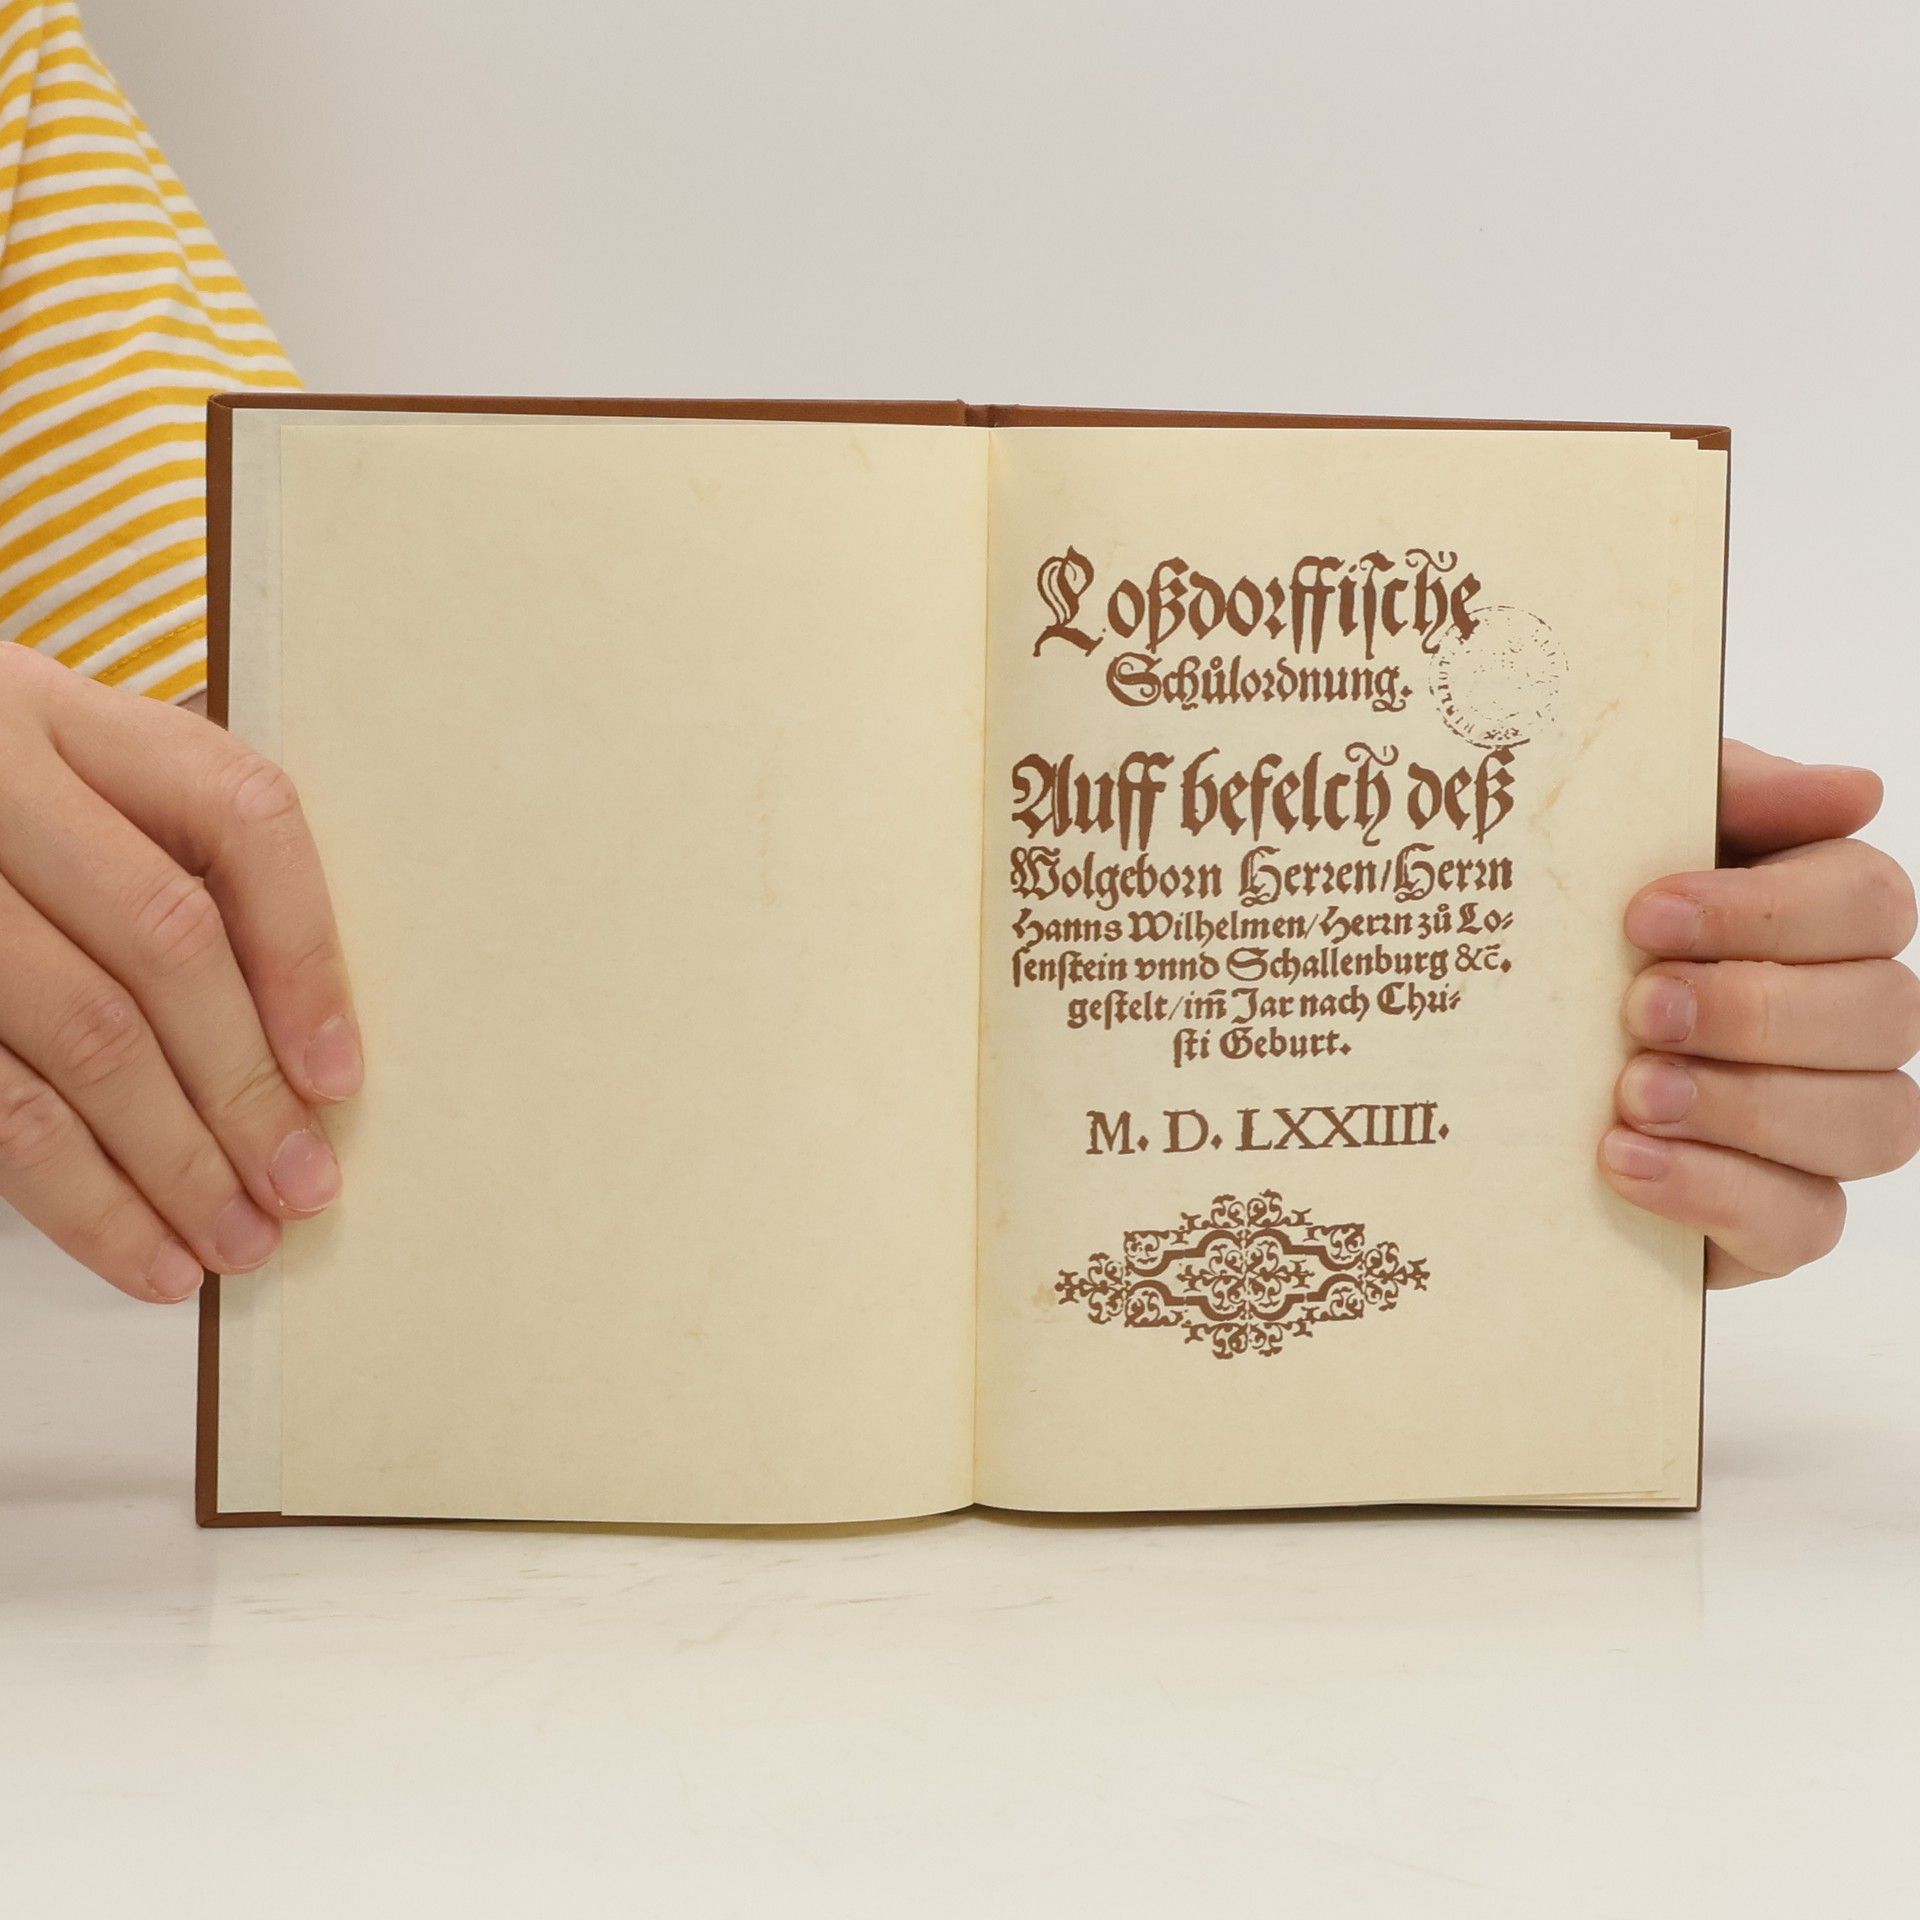 Loßdorffische
Schůlordnung.
Auff befelch deß
Wolgeborn Herren/Herrn
Hanns Wilhelmen/Herrn zů Lo⸗
senstein vnnd Schallenburg &c̃.
gestelt/im̃ Jar nach Chri⸗
sti Geburt.
M. D. LXXIIII.